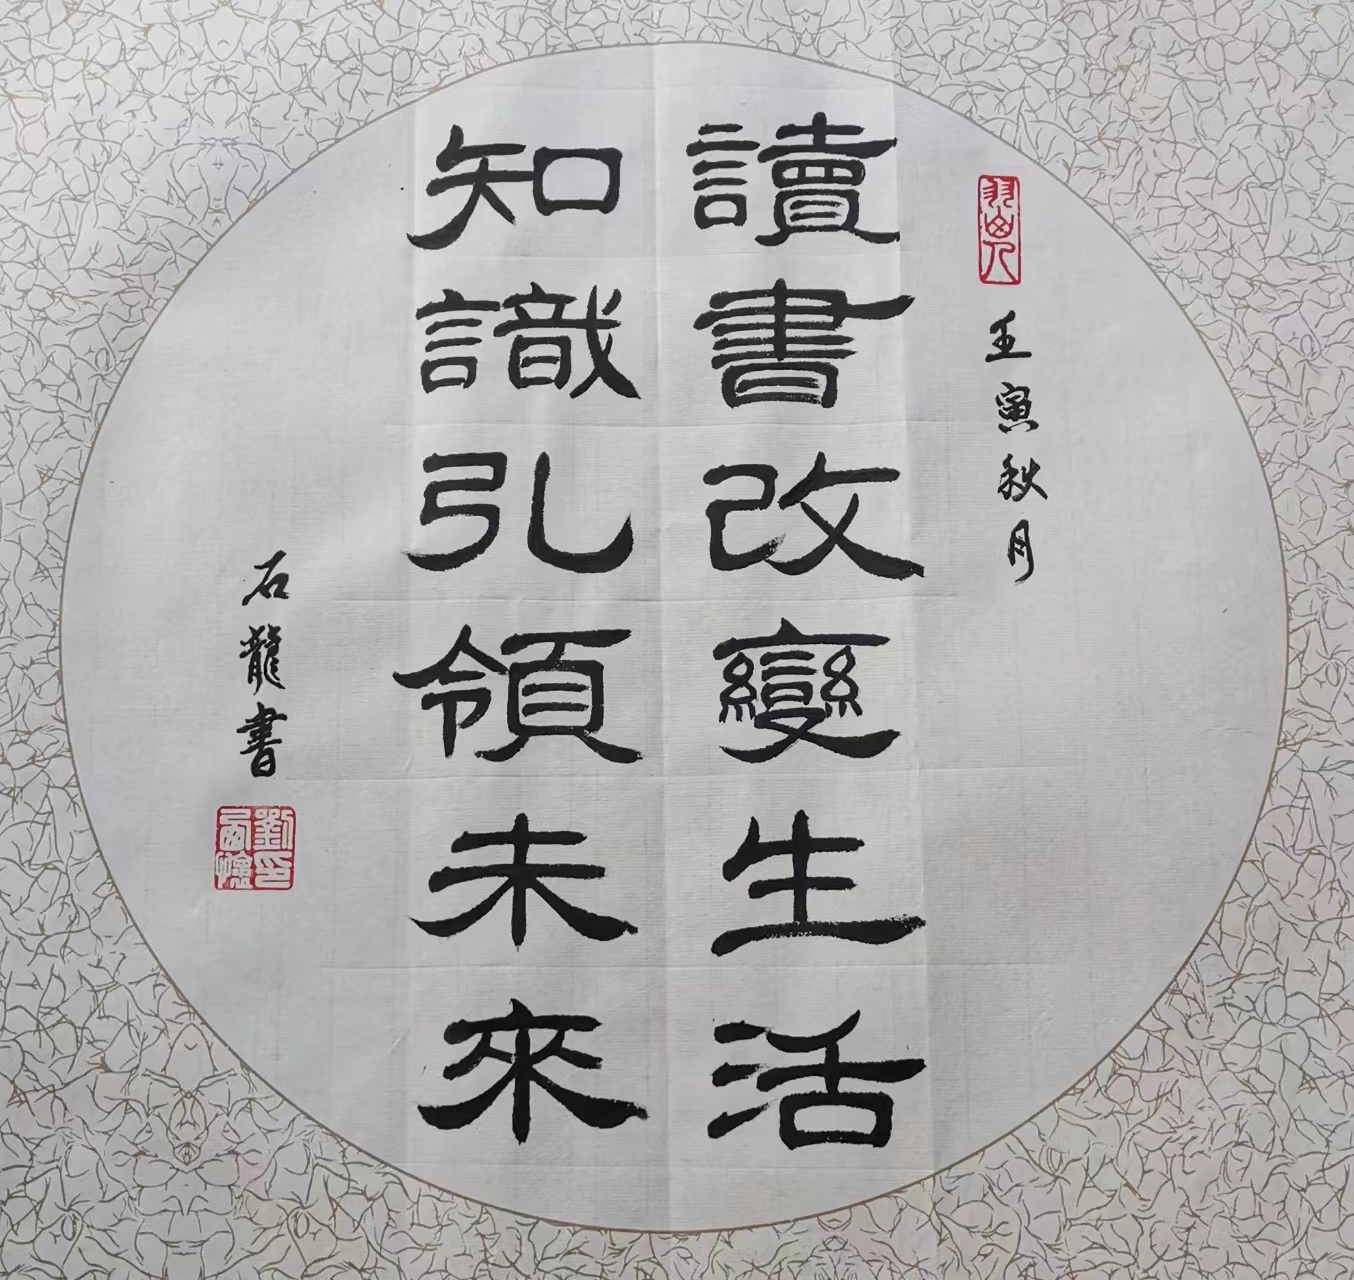 壬寅秋月
讀書改變生活
知識引領未來
石龍書